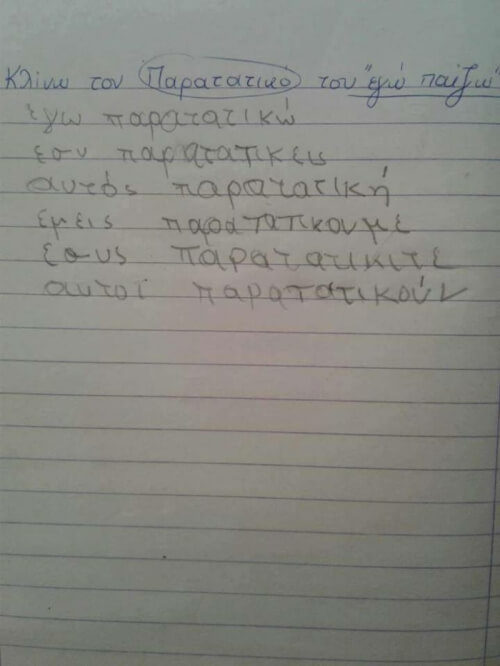 Κλίνω τον Παρατατικό του "εγώ παίζω"
εγω παρατατικώ
εσυ παρατατικεις
αυτός παρατατική
εμεις παρατατικουμέ
εσυς παρατατικιτε
αυτοί παρατατικούν